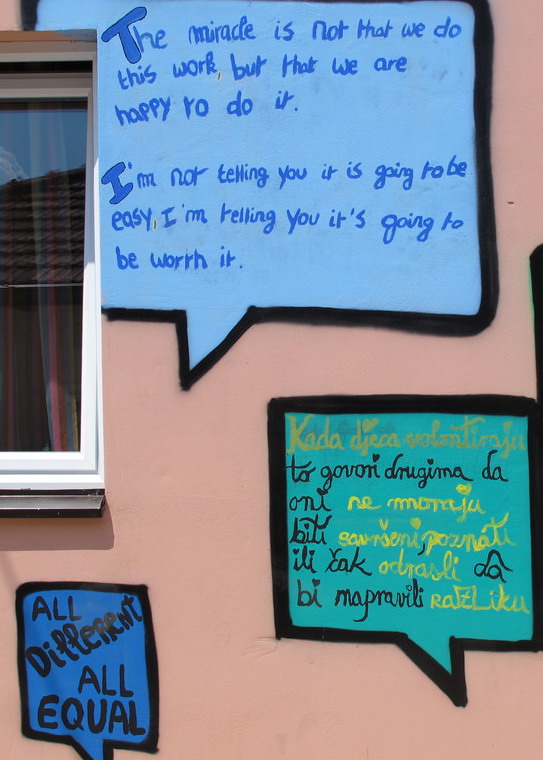 The miracle is not that we do
this work, but that we are
happy to do it.
I'm not telling you it is going to be
easy, I'm telling you it's going to
be worth it.
Kada djeca volontiraju
to govori drugima da
oni ne moraju
biti savršeni, poznati
ili čak odrasli da
bi napravili RaZLiku
ALL
DiffeRenT
ALL
EQUAL